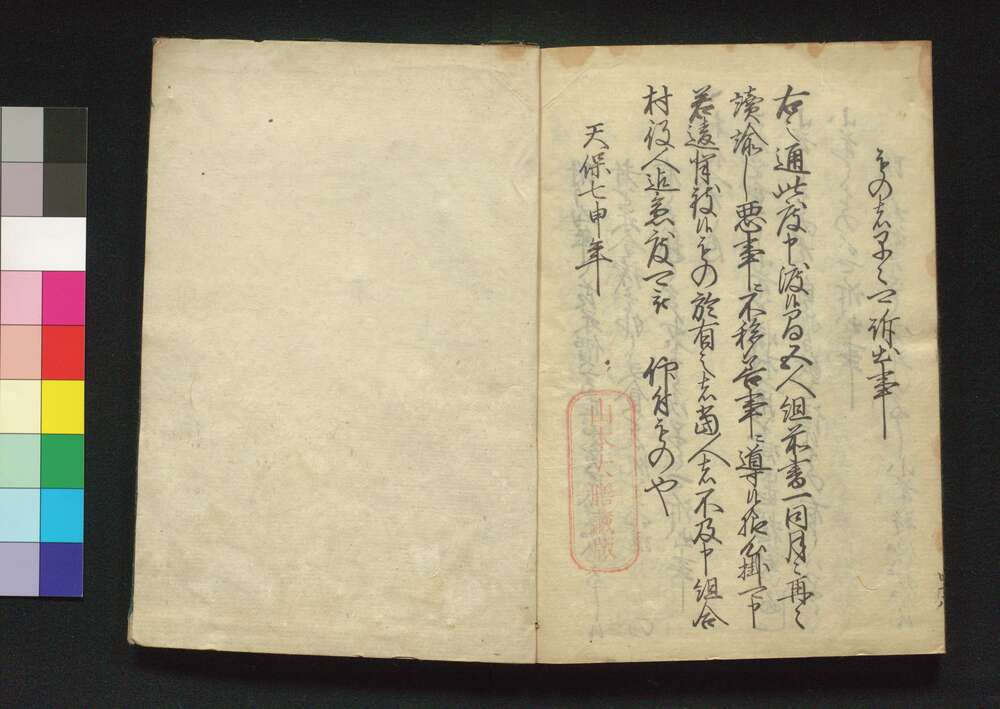 もの有之ハ可訴出事
右之通此度申渡候間五人組前書一同月々再々
読諭し悪事ニ不移善事ニ導候様心掛可申
若違背致候もの於有之者当人者不及申組合
村役人迄急度可被 仰付もの也
天保七申年
山本大膳蔵版